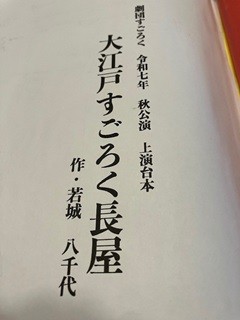 劇団すごろく　令和七年　秋公演　上演台本
大江戸すごろく長屋
作・若城　八千代